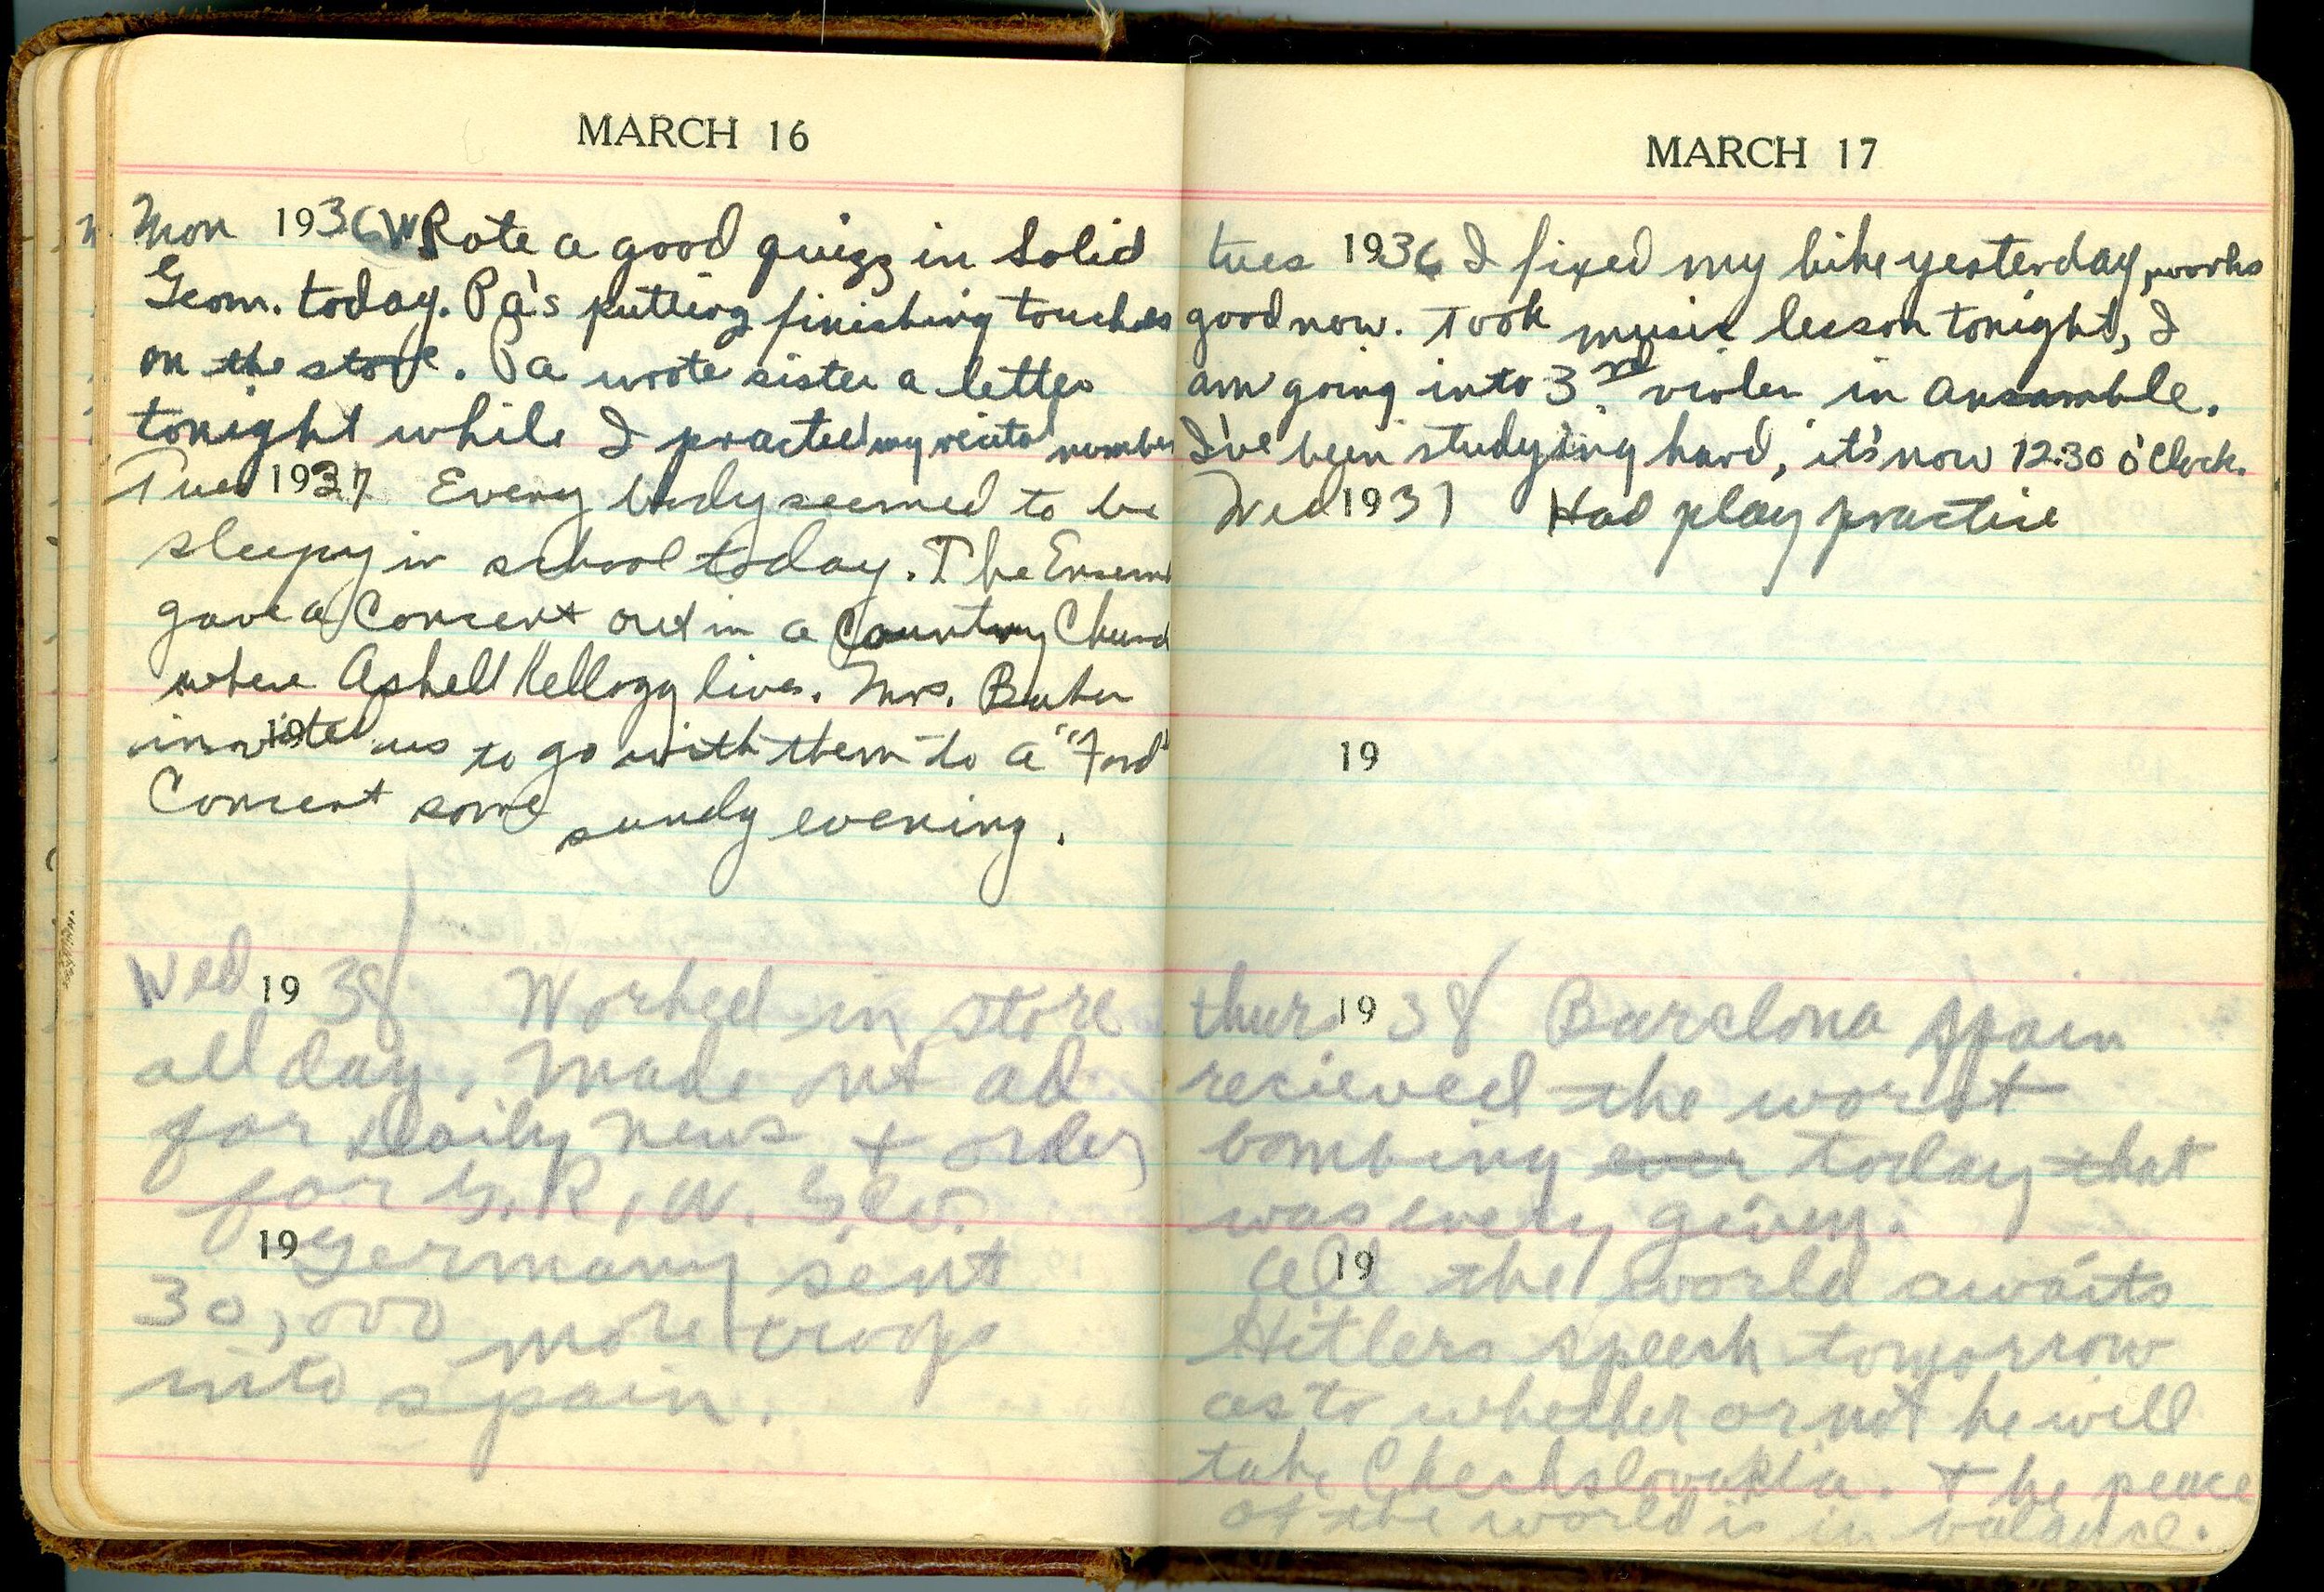 MARCH 16
Mon 1936 WRote a good quizz in Solid
Geom. today. Pa's putting finishing touches
on the store. Pa wrote sister a letter
tonight while I practed my recital number
Tues 1937 Every body seemed to be
sleepy in school today. The Ensem
gave a Concert out in a Country Church
where Ashell Kellogg lives. Mrs. Baker
invited us to go with them to a "Ford"
Concert some sundy evening.
Wed 1938 Worked in store
all day. Made out ad
for Daily News + order
for G.R.W.
19 Germany sent
30,000 more troops
into spain.
MARCH 17
tues 1936 I fixed my bike yesterday, works
good now. Took music lesson tonight, I
am going into 3rd violen in ansamble.
I've been studying hard, it's now 12:30 o'Clock.
Wed 1937 Had play practise
19
thurs 1938 Barclona Spain
recieved the worst
bombing ever today that
was every given.
19 All the world awaits
Hitlers speech tomorrow
as to whether or not he will
take Chechslovakia. The peace
of the world is in balance.